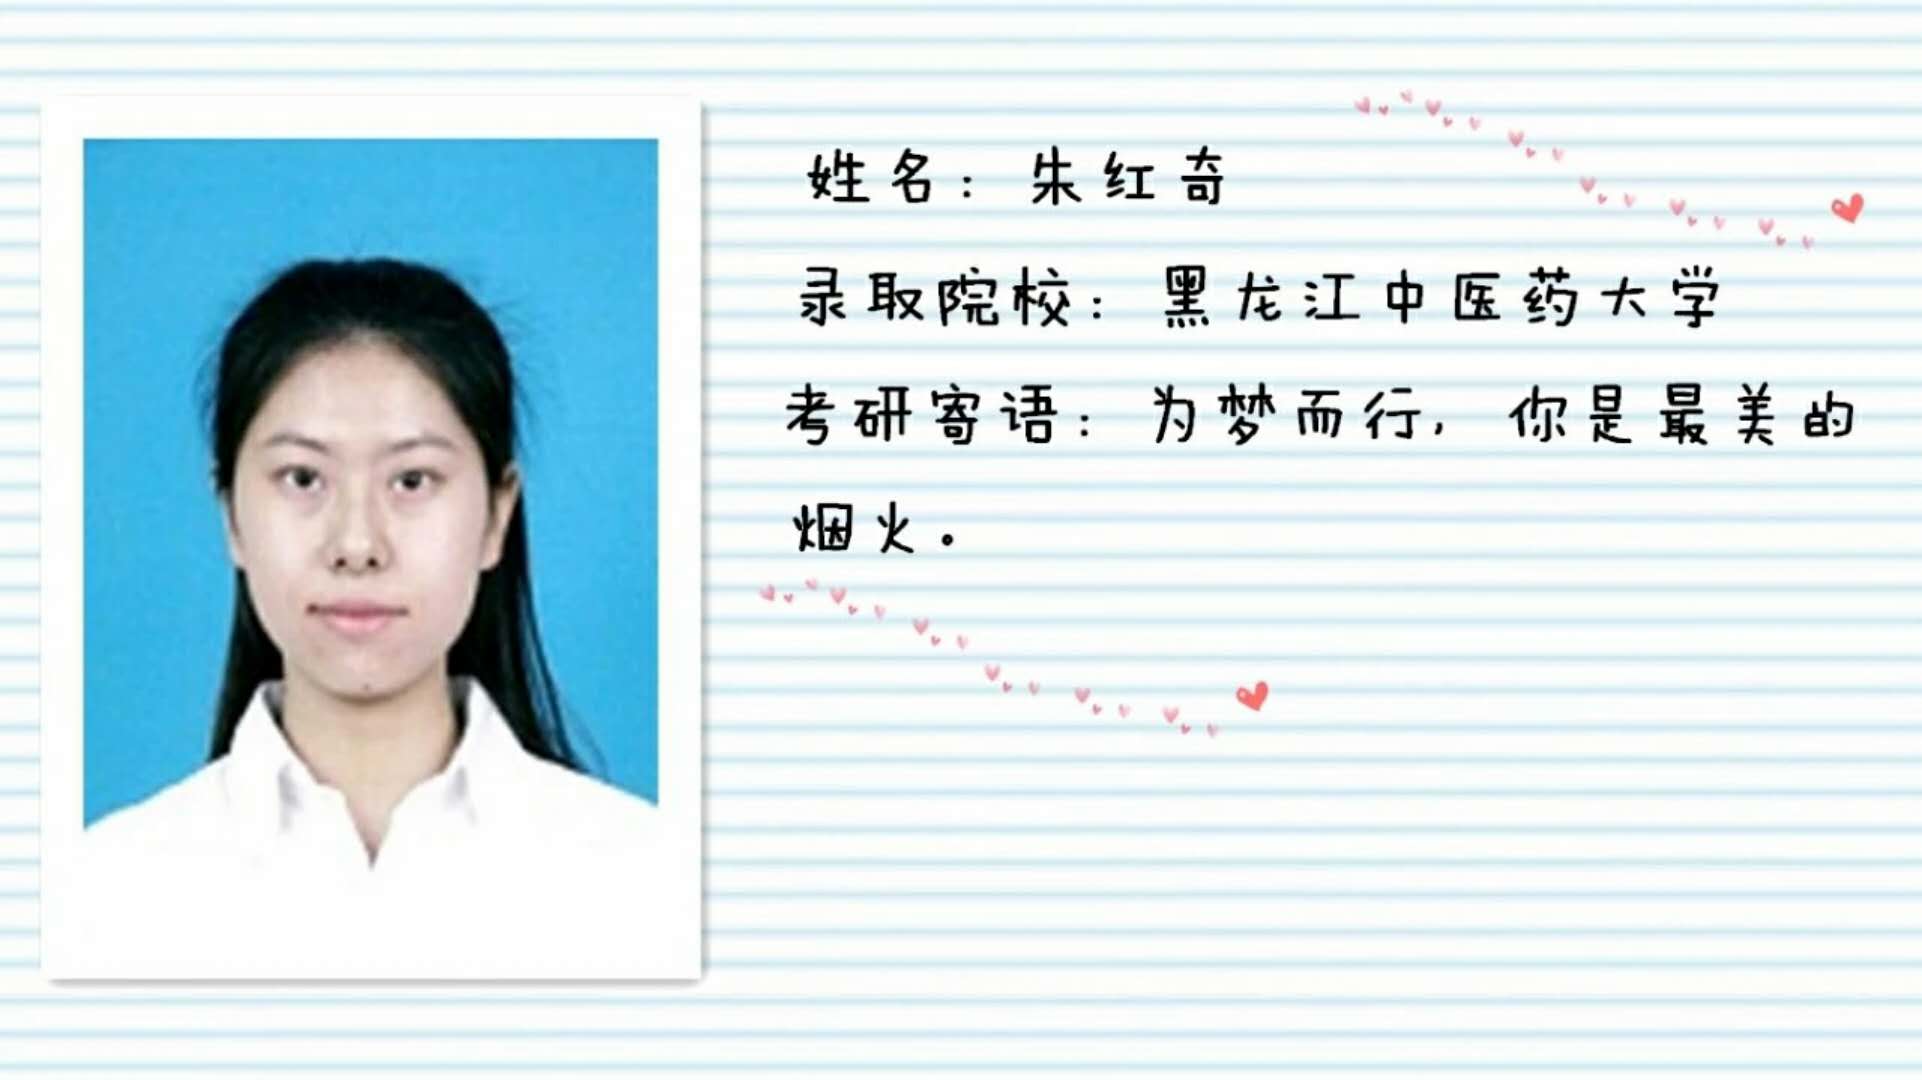 姓名：朱红奇
录取院校：黑龙江中医药大学
考研寄语：为梦而行，你是最美的
烟火。